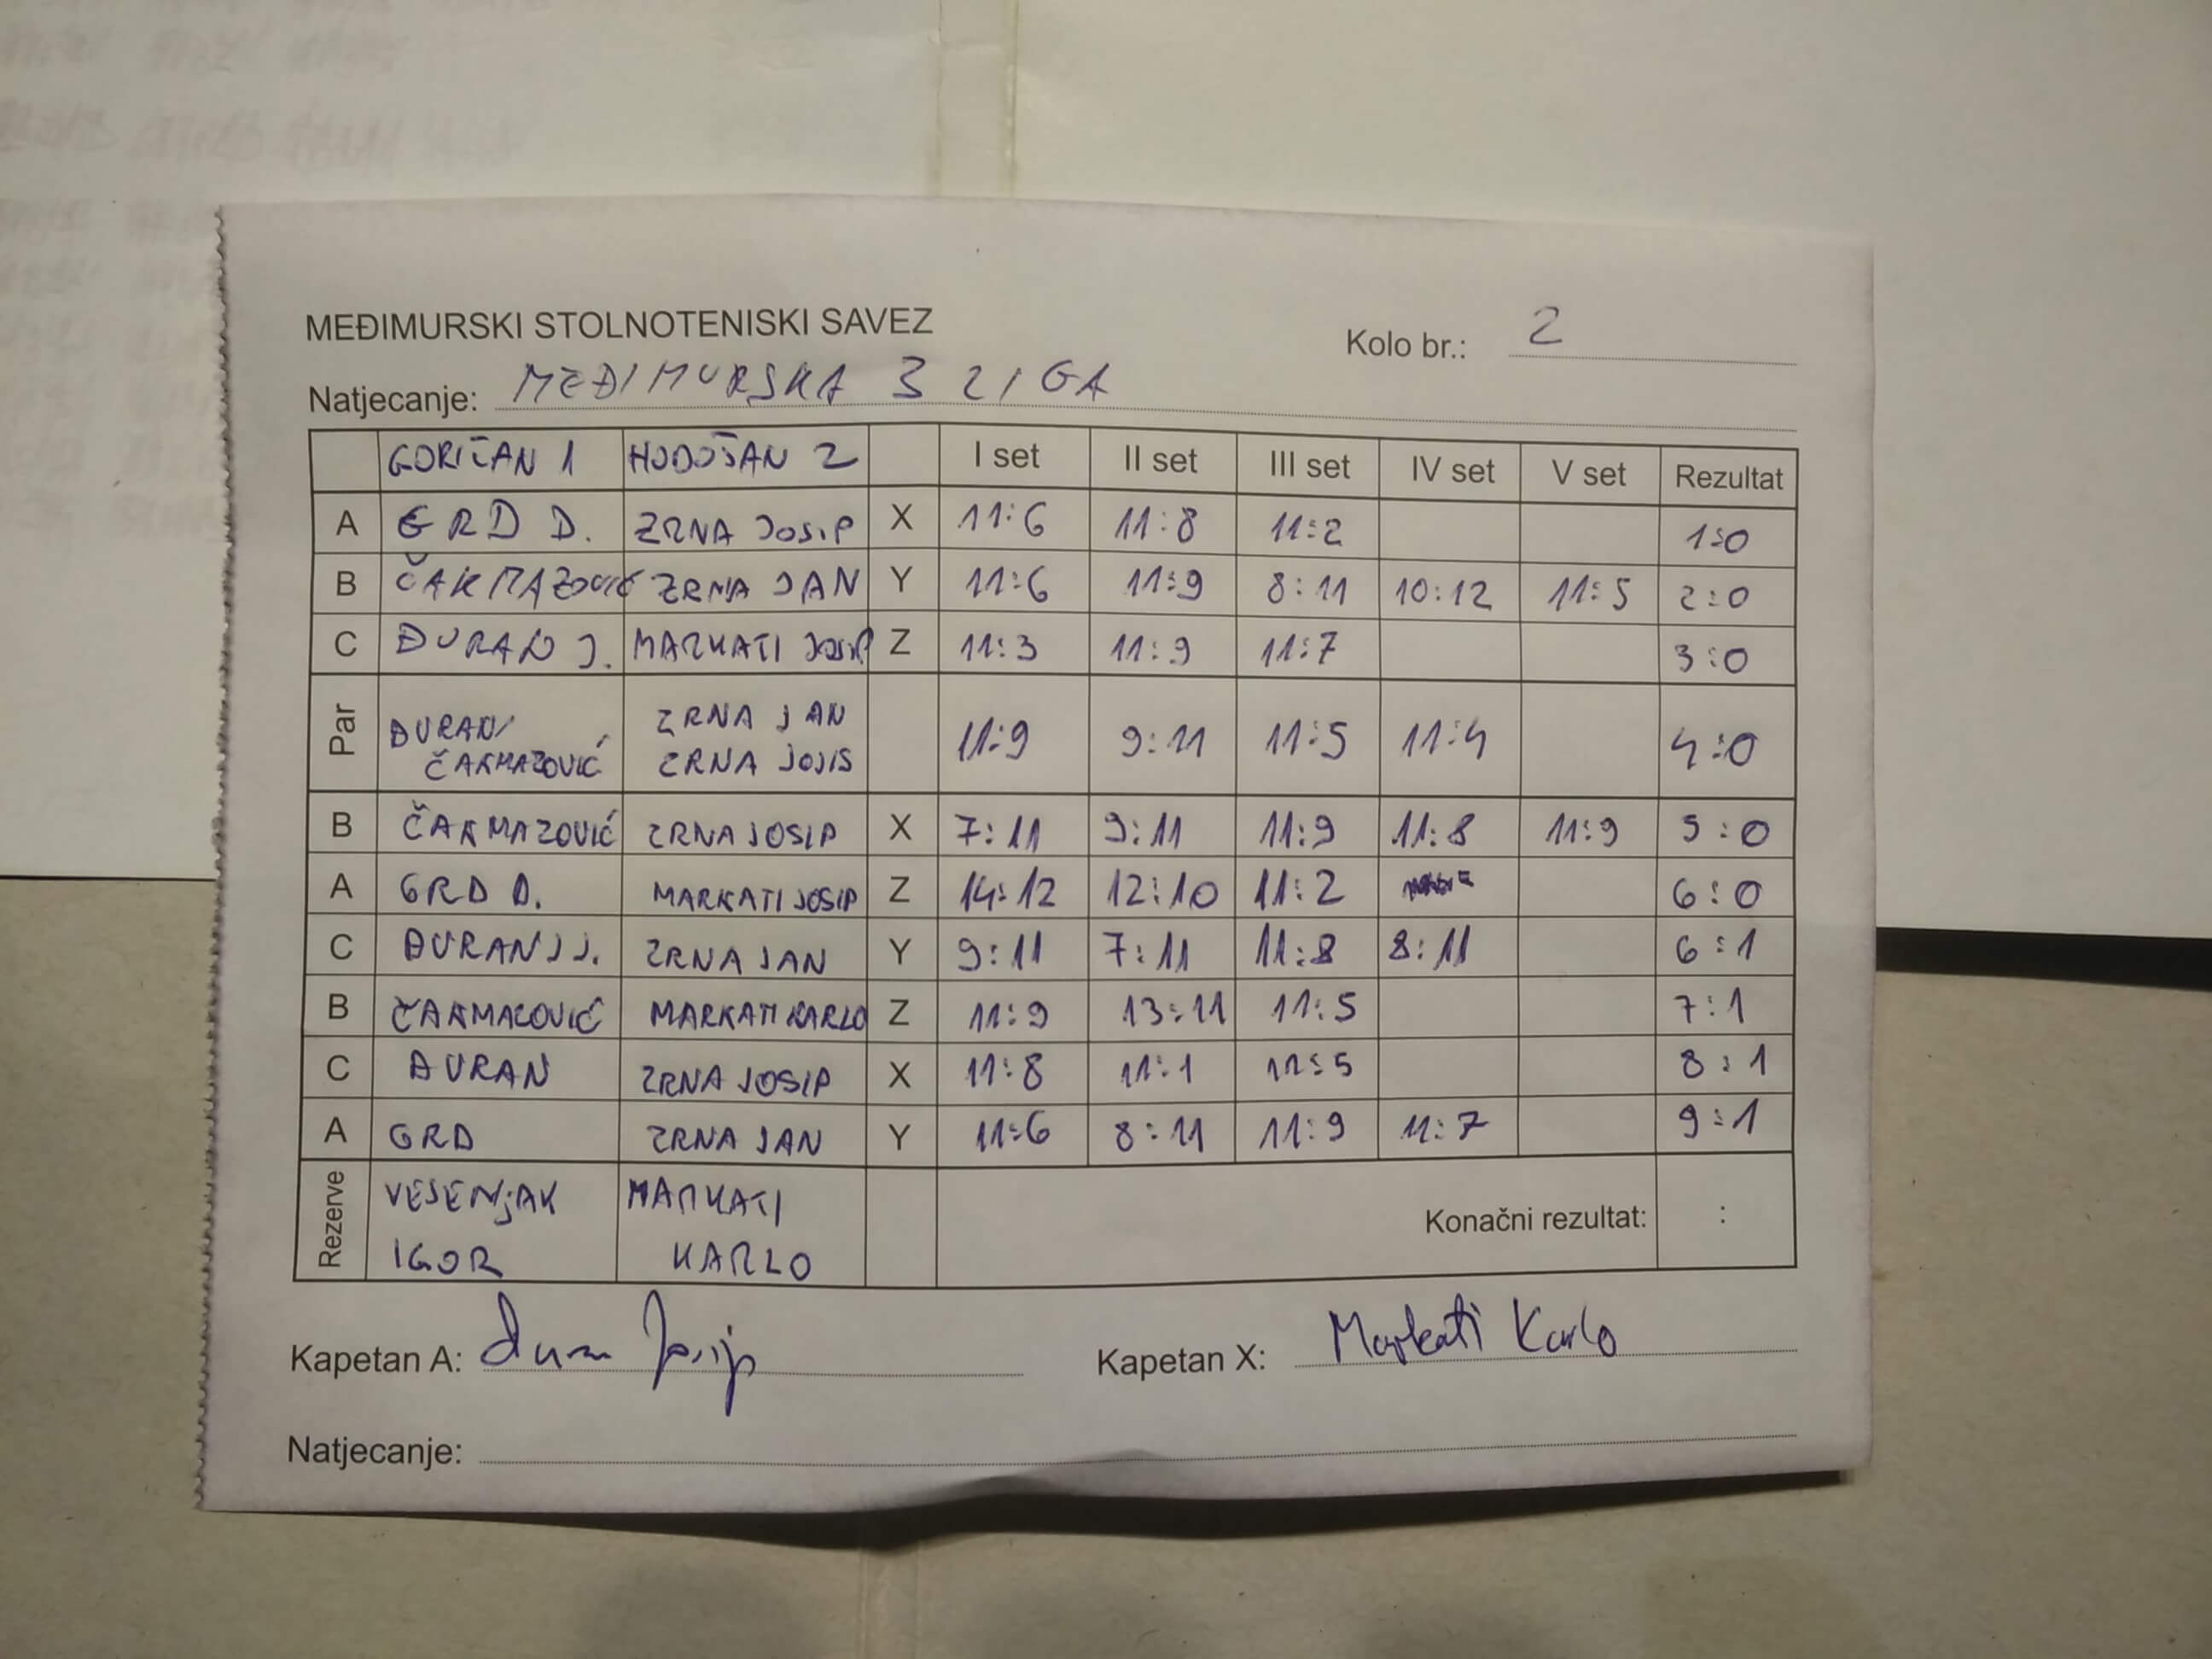 MEĐIMURSKI STOLNOTENISKI SAVEZ
Kolo br.: 2
Natjecanje: MEĐIMURSKA 3 LIGA
GORIČAN 1 HODOŠAN 2 I set II set III set IV set V set Rezultat
A GRD D. ZRNA JOSIP X 11:6 11:8 11:2 1:0
B ČAKMAZOVIĆ ZRNA JAN Y 11:6 11:9 8:11 10:12 11:5 2:0
C ĐURAN J. MARKATI JOSIP Z 11:3 11:9 11:7 3:0
Par ĐURAN/ ČAKMAZOVIĆ ZRNA JAN ZRNA JOJIS 11:9 9:11 11:5 11:4 4:0
B ČAKMAZOVIĆ ZRNA JOSIP X 7:11 9:11 11:9 11:8 11:9 5:0
A GRD D. MARKATI JOSIP Z 14:12 12:10 11:2 6:0
C ĐURAN J. ZRNA JAN Y 9:11 7:11 11:8 8:11 6:1
B ČAKMAZOVIĆ MARKATI KARLO Z 11:9 13:11 11:5 7:1
C ĐURAN ZRNA JOSIP X 11:8 11:1 11:5 8:1
A GRD ZRNA JAN Y 11:6 8:11 11:9 11:7 9:1
Rezerve VESENJAK IGOR MARKATI KARLO Konačni rezultat: :
Kapetan A: Đuran Josip Kapetan X: Markati Karlo
Natjecanje: